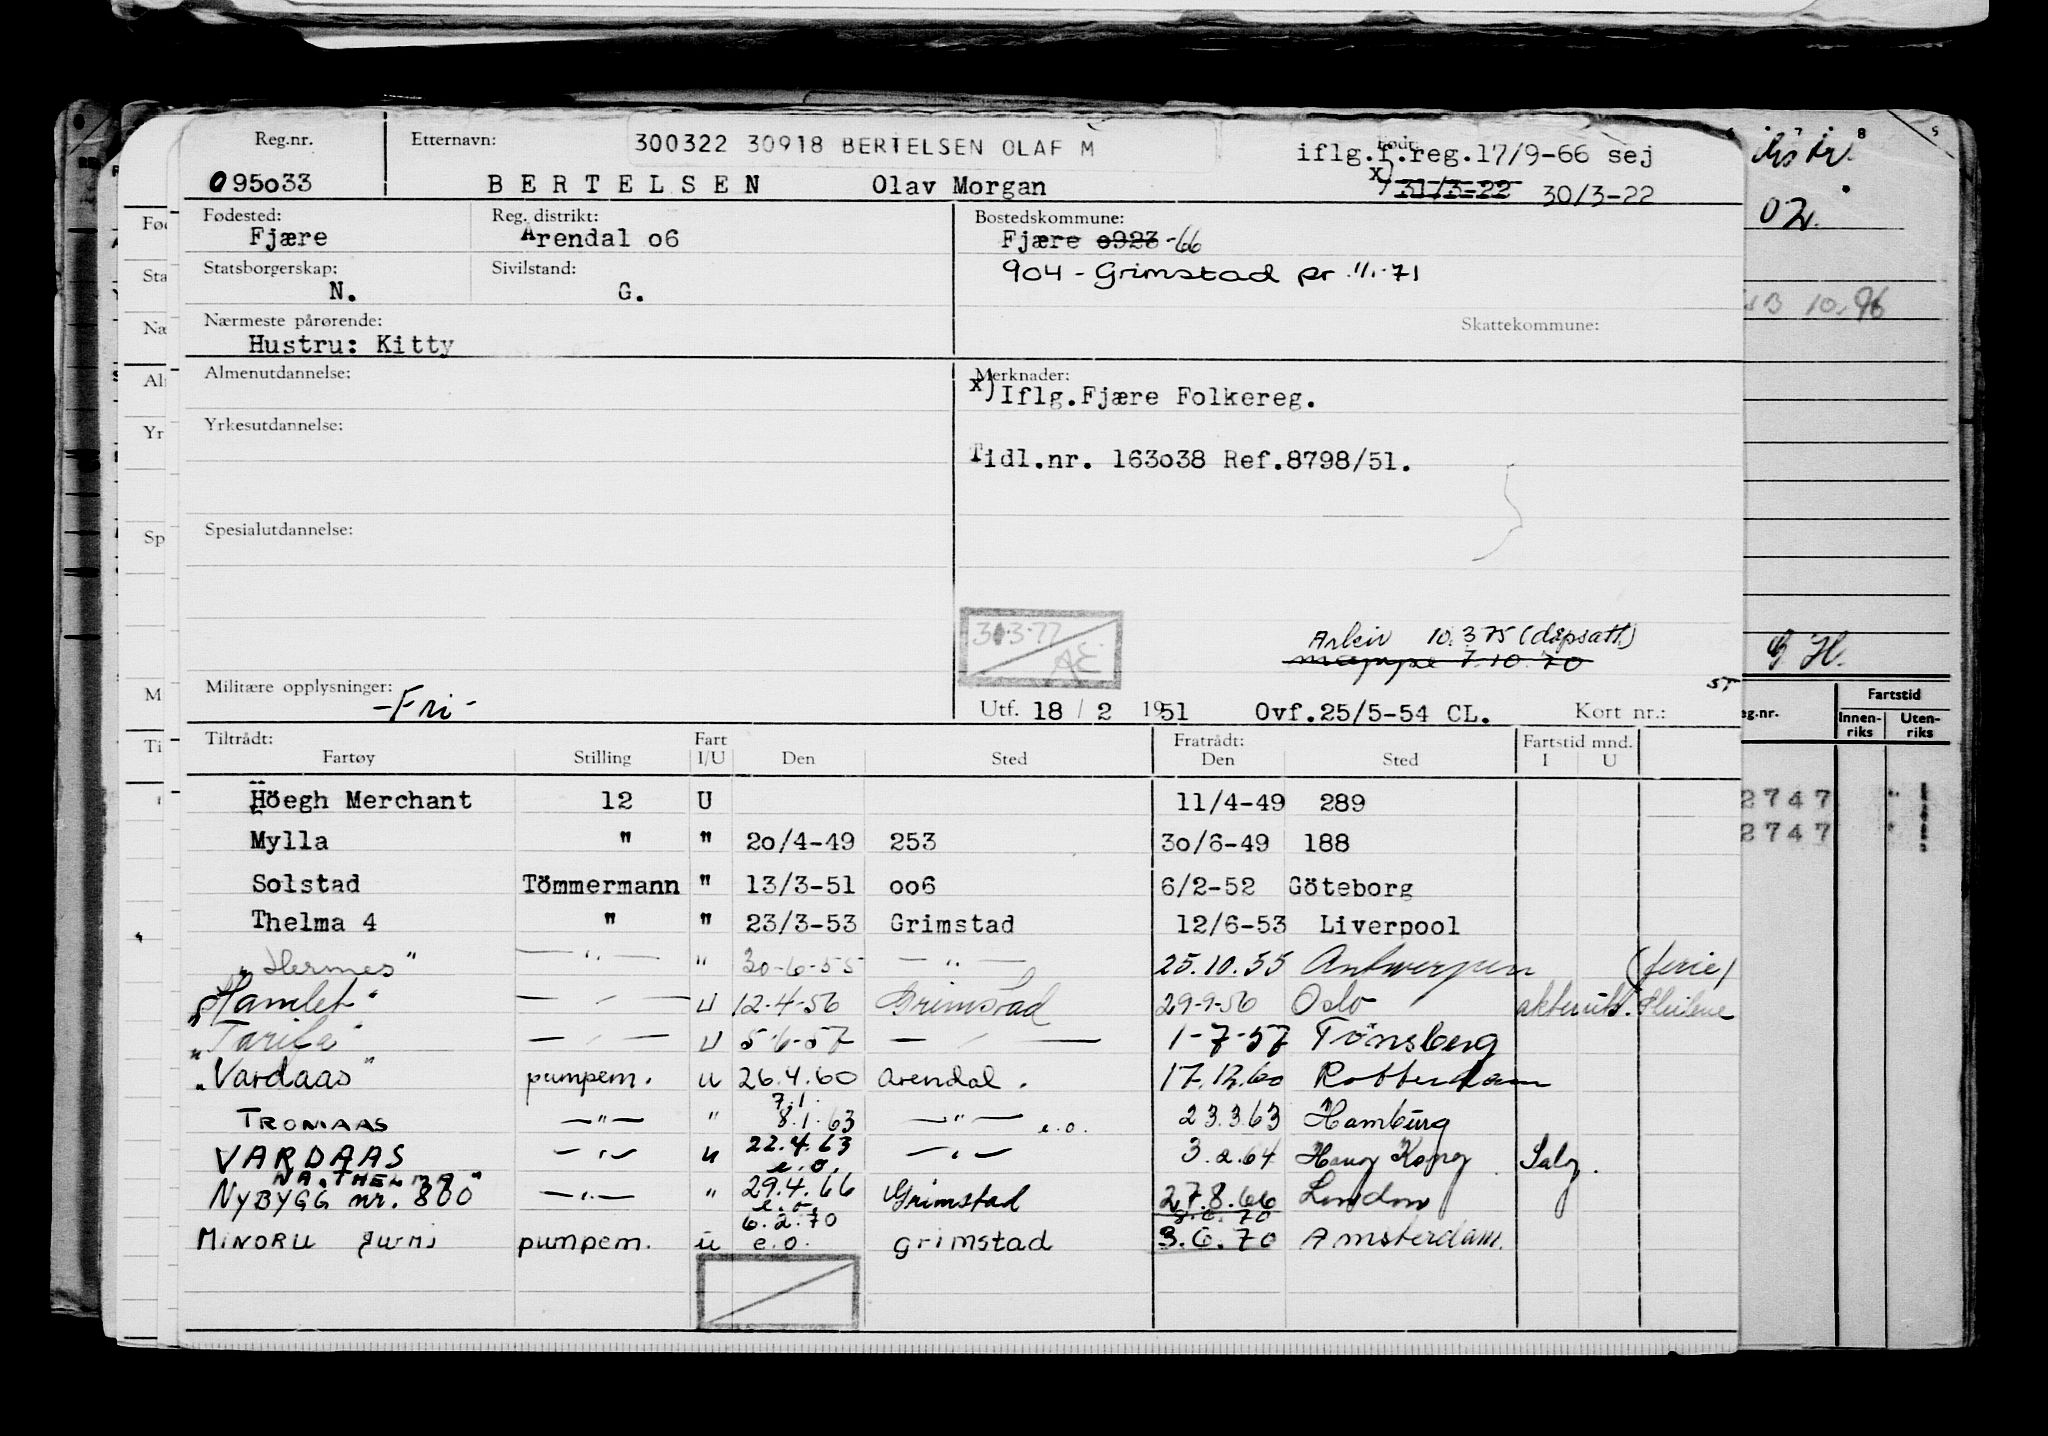 Reg.nr. Etternavn: 300322 30918 BERTELSEN OLAF M Født:
iflg.f.reg.17/9-66 sej
095o33 B E R T E L S E N Olav Morgan x) 31/3-22 30/3-22
Fødested: Reg. distrikt: Bostedskommune:
Fjære Arendal o6 Fjære o923 -66
Statsborgerskap: Sivilstand: 904 - Grimstad pr 1/1-71
N. G.
Nærmeste pårørende: Skattekommune:
Hustru: Kitty
Almenutdannelse: Merknader:
x) Iflg.Fjære Folkereg.
Yrkesutdannelse:
Tidl.nr. 163o38 Ref.8798/51.
Spesialutdannelse:
AE
Arkiv 10.3.75 (dispsatt)
mappe 7.10.70
Militære opplysninger: -Fri-
ST
Utf. 18 / 2 1951 Ovf.25/5-54 CL. Kort nr.:
Tiltrådt: Fart Fratrådt: Fartstid mnd.
Fartøy Stilling I/U Den Sted Den Sted I U
Höegh Merchant 12 U 11/4-49 289
Mylla " " 2o/4-49 253 3o/6-49 188
Solstad Tömmermann " 13/3-51 oo6 6/2-52 Göteborg
Thelma 4 " " 23/3-53 Grimstad 12/6-53 Liverpool
"Hermes" — " — " 30-6-55 — " — 25.10.55 Antwerpen (ferie)
"Hamlet" — " — U 12-4-56 Grimstad 29-9-56 Oslo
"Tarifa" — " — U 5-6-57 — " — 1-7-57 Tönsberg
"Vardaas" pumpem. u 26.4.60 Arendal. 17.12.60 Rotterdam
7.1.
TROMAAS — " — " 8.1.63 — " — e.o. 23.3.63 Hamburg
VARDAAS — " — u 22.4.63 e.o. — " — 3.2.64 Hong Kong Salg.
NÅ "THELMA"
NYBYGG nr. 800 — " — " 29.4.66 e.o. Grimstad 27.8.66 London
MINORU pumpem. u 6.2.70 e.o. grimstad 3.6.70 Amsterdam.
Fartstid
Innen-riks Uten-riks
2747
2747